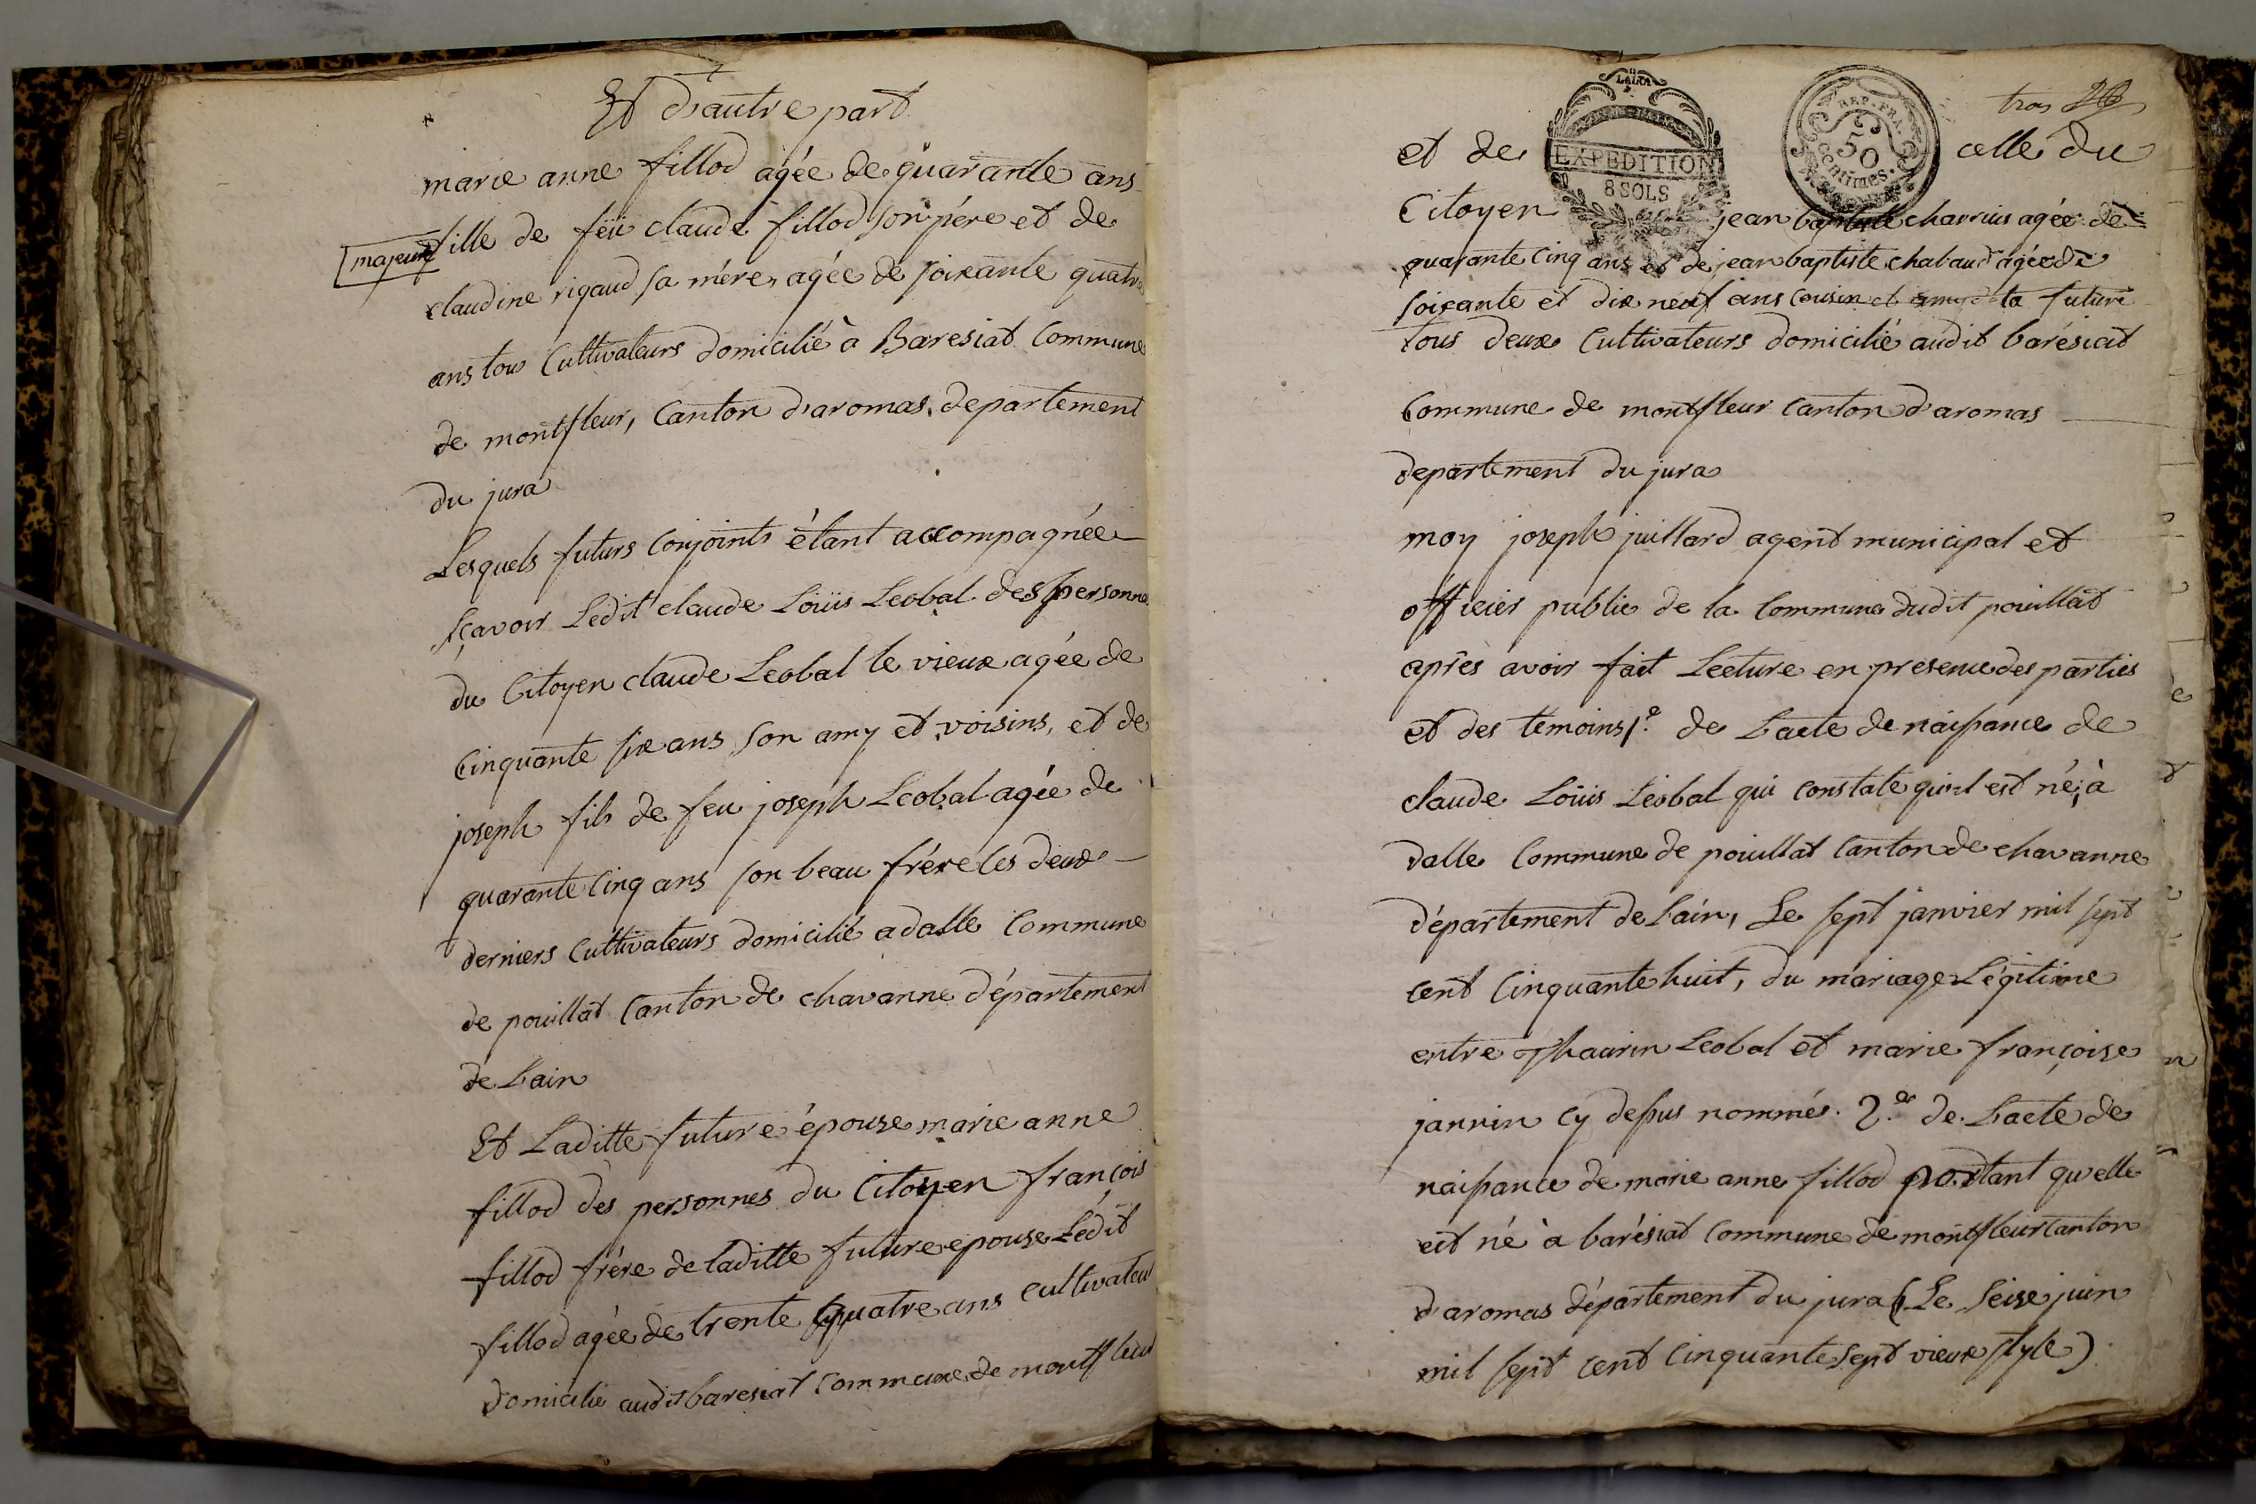 Et d'autre part
marie anne fillod agée de quarante ans
fille de feü claude fillod son pére et de
majeure
claudine rigaud sa mére, agée de soixante quatre
ans tous Cultivateurs domicilié à Baresiat Commune
de montfleur, Canton d'aromas, departement
du jura
Lesquels futurs Conjoints étant accompagnée
sçavoir Ledit claude Loüis Leobal des personnes
du Citoyen claude Leobal le vieux agée de
Cinquante six ans son amy et voisins, et de
joseph fils de feu joseph Leobal agée de
quarante Cinq ans son beau frére les deux
derniers Cultivateurs domicilié a dalle Commune
de pouillat Canton de chavanne département
de Lain
Et Laditte future épouse marie anne
fillod des personnes du Citoyen françois
fillod frére de laditte future epouse Lédit
fillod agée de trente quatre ans cultivateur
domicilié audit baresiat Commune de montfleur
LAIRA
EXPEDITION
8 SOLS
REP. FRA.
50
Centimes.
26
et de celle du
Citoyen jean baptiste charrius agée de
quarante Cinq ans et de jean baptiste chabaud agée de
soixante et dix neuf ans Cousin et amy de la future
tous deux Cultivateurs domicilié audit barésiat
Commune de montfleur Canton d'aromas
departement du jura
moy joseph juillard agent municipal et
officier public de la Commune dudit pouillat
aprés avoir fait Lecture en presence des parties
et des temoins 1.e de Lacte de naissance de
claude Loüis Léobal qui constate qu'il est né, à
dalle Commune de pouillat Canton de chavanne
département de Lain, Le sept janvier mil sept
cent Cinquante huit, du mariage Légitime
entre Leobal et marie françoise
janvin cy dessus nommés. 2.e de Lacte de
naissance de marie anne fillod portant qu'elle
est né à barésiat Commune de montfleur Canton
d'aromas département du jura (Le seise juin
mil sept cent Cinquante sept vieux style)